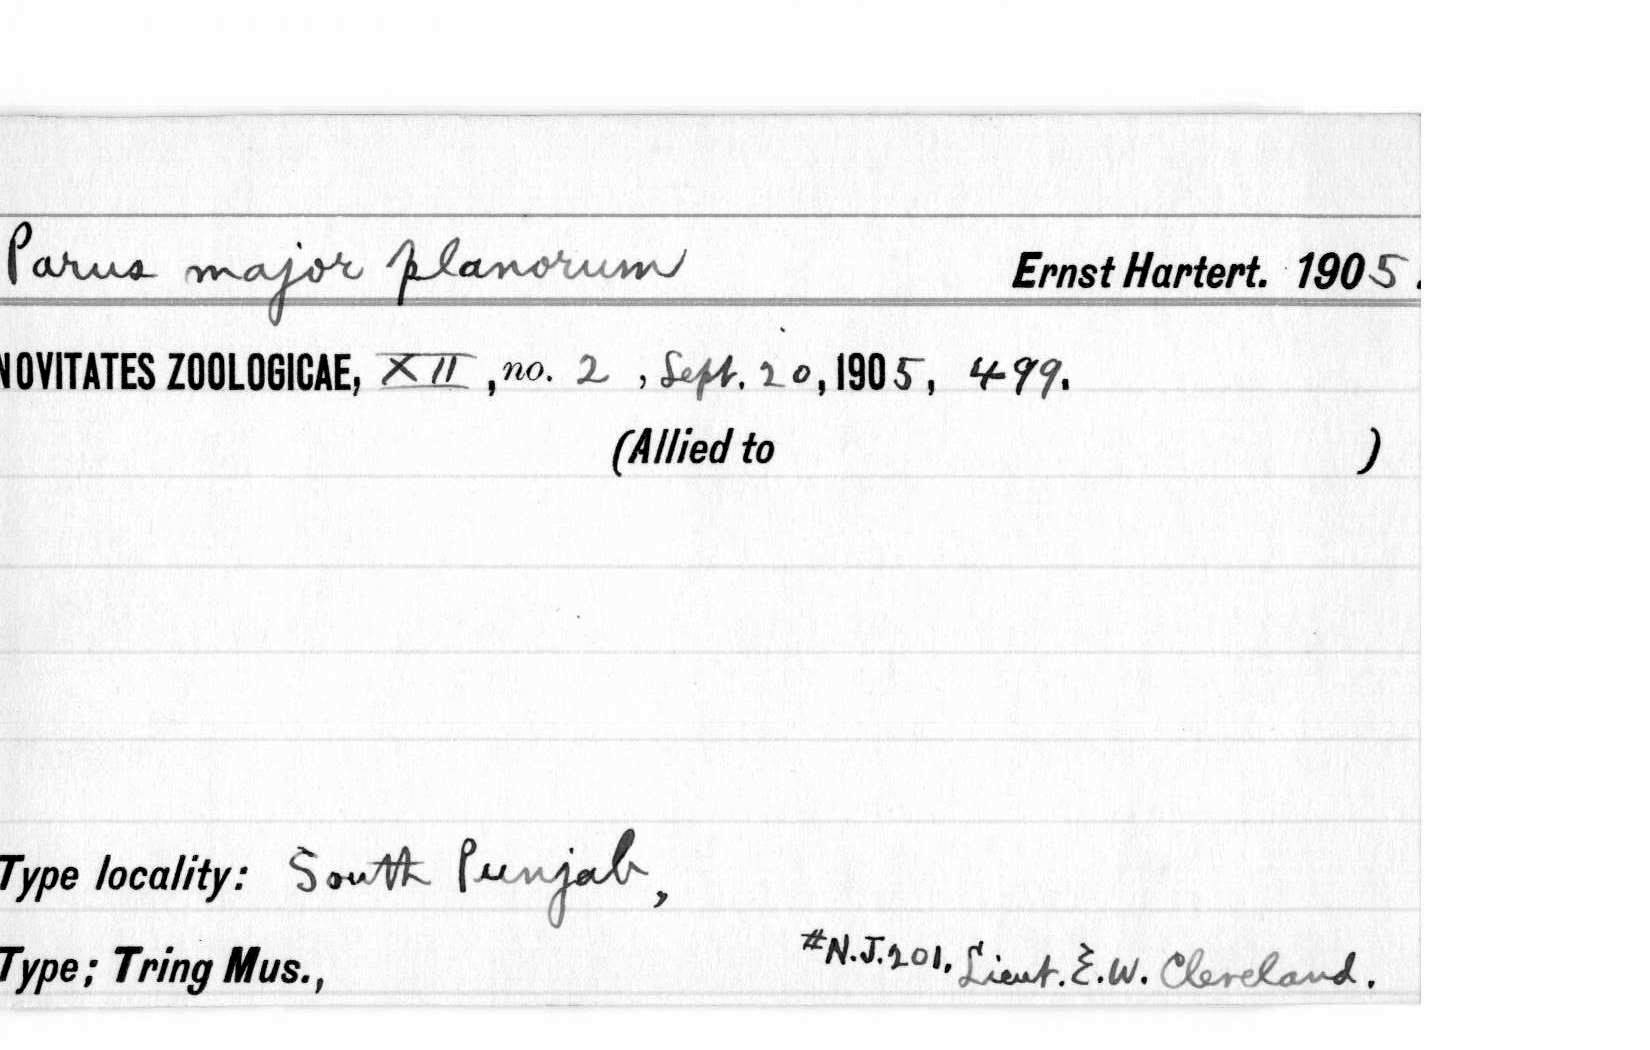 Parus major planorum Ernst Hartert. 1905.
NOVITATES ZOOLOGICAE, XII, no. 2, Sept. 20, 1905, 499.
(Allied to )
Type locality: South Punjab,
Type; Tring Mus., #N.J.201, Lieut. E.W. Cleveland.